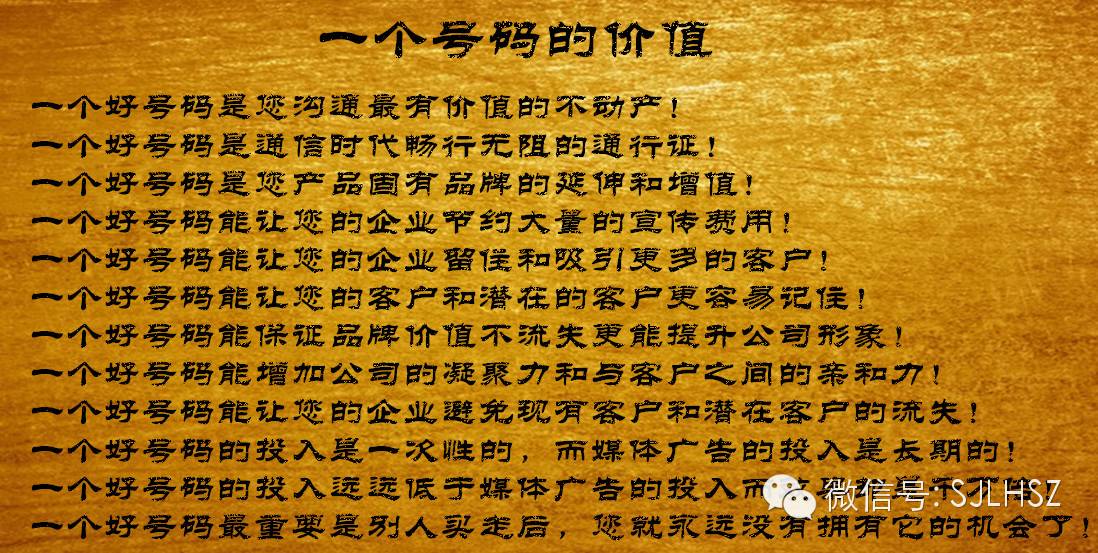 一个号码的价值
一个好号码是您沟通最有价值的不动产!
一个好号码是通信时代畅行无阻的通行证!
一个好号码是您产品固有品牌的延伸和增值!
一个好号码能让您的企业节约大量的宣传费用!
一个好号码能让您的企业留住和吸引更多的客户!
一个好号码能让您的客户和潜在的客户更容易记住!
一个好号码能保证品牌价值不流失更能提升公司形象!
一个好号码能增加公司的凝聚力和与客户之间的亲和力!
一个好号码能让您的企业避免现有客户和潜在客户的流失!
一个好号码的投入是一次性的, 而媒体广告的投入是长期的!
一个好号码的投入远远低于媒体广告的投入而
微信号: SJLHSZ
一个好号码最重要是别人买走后, 您就永远没有拥有它的机会了!